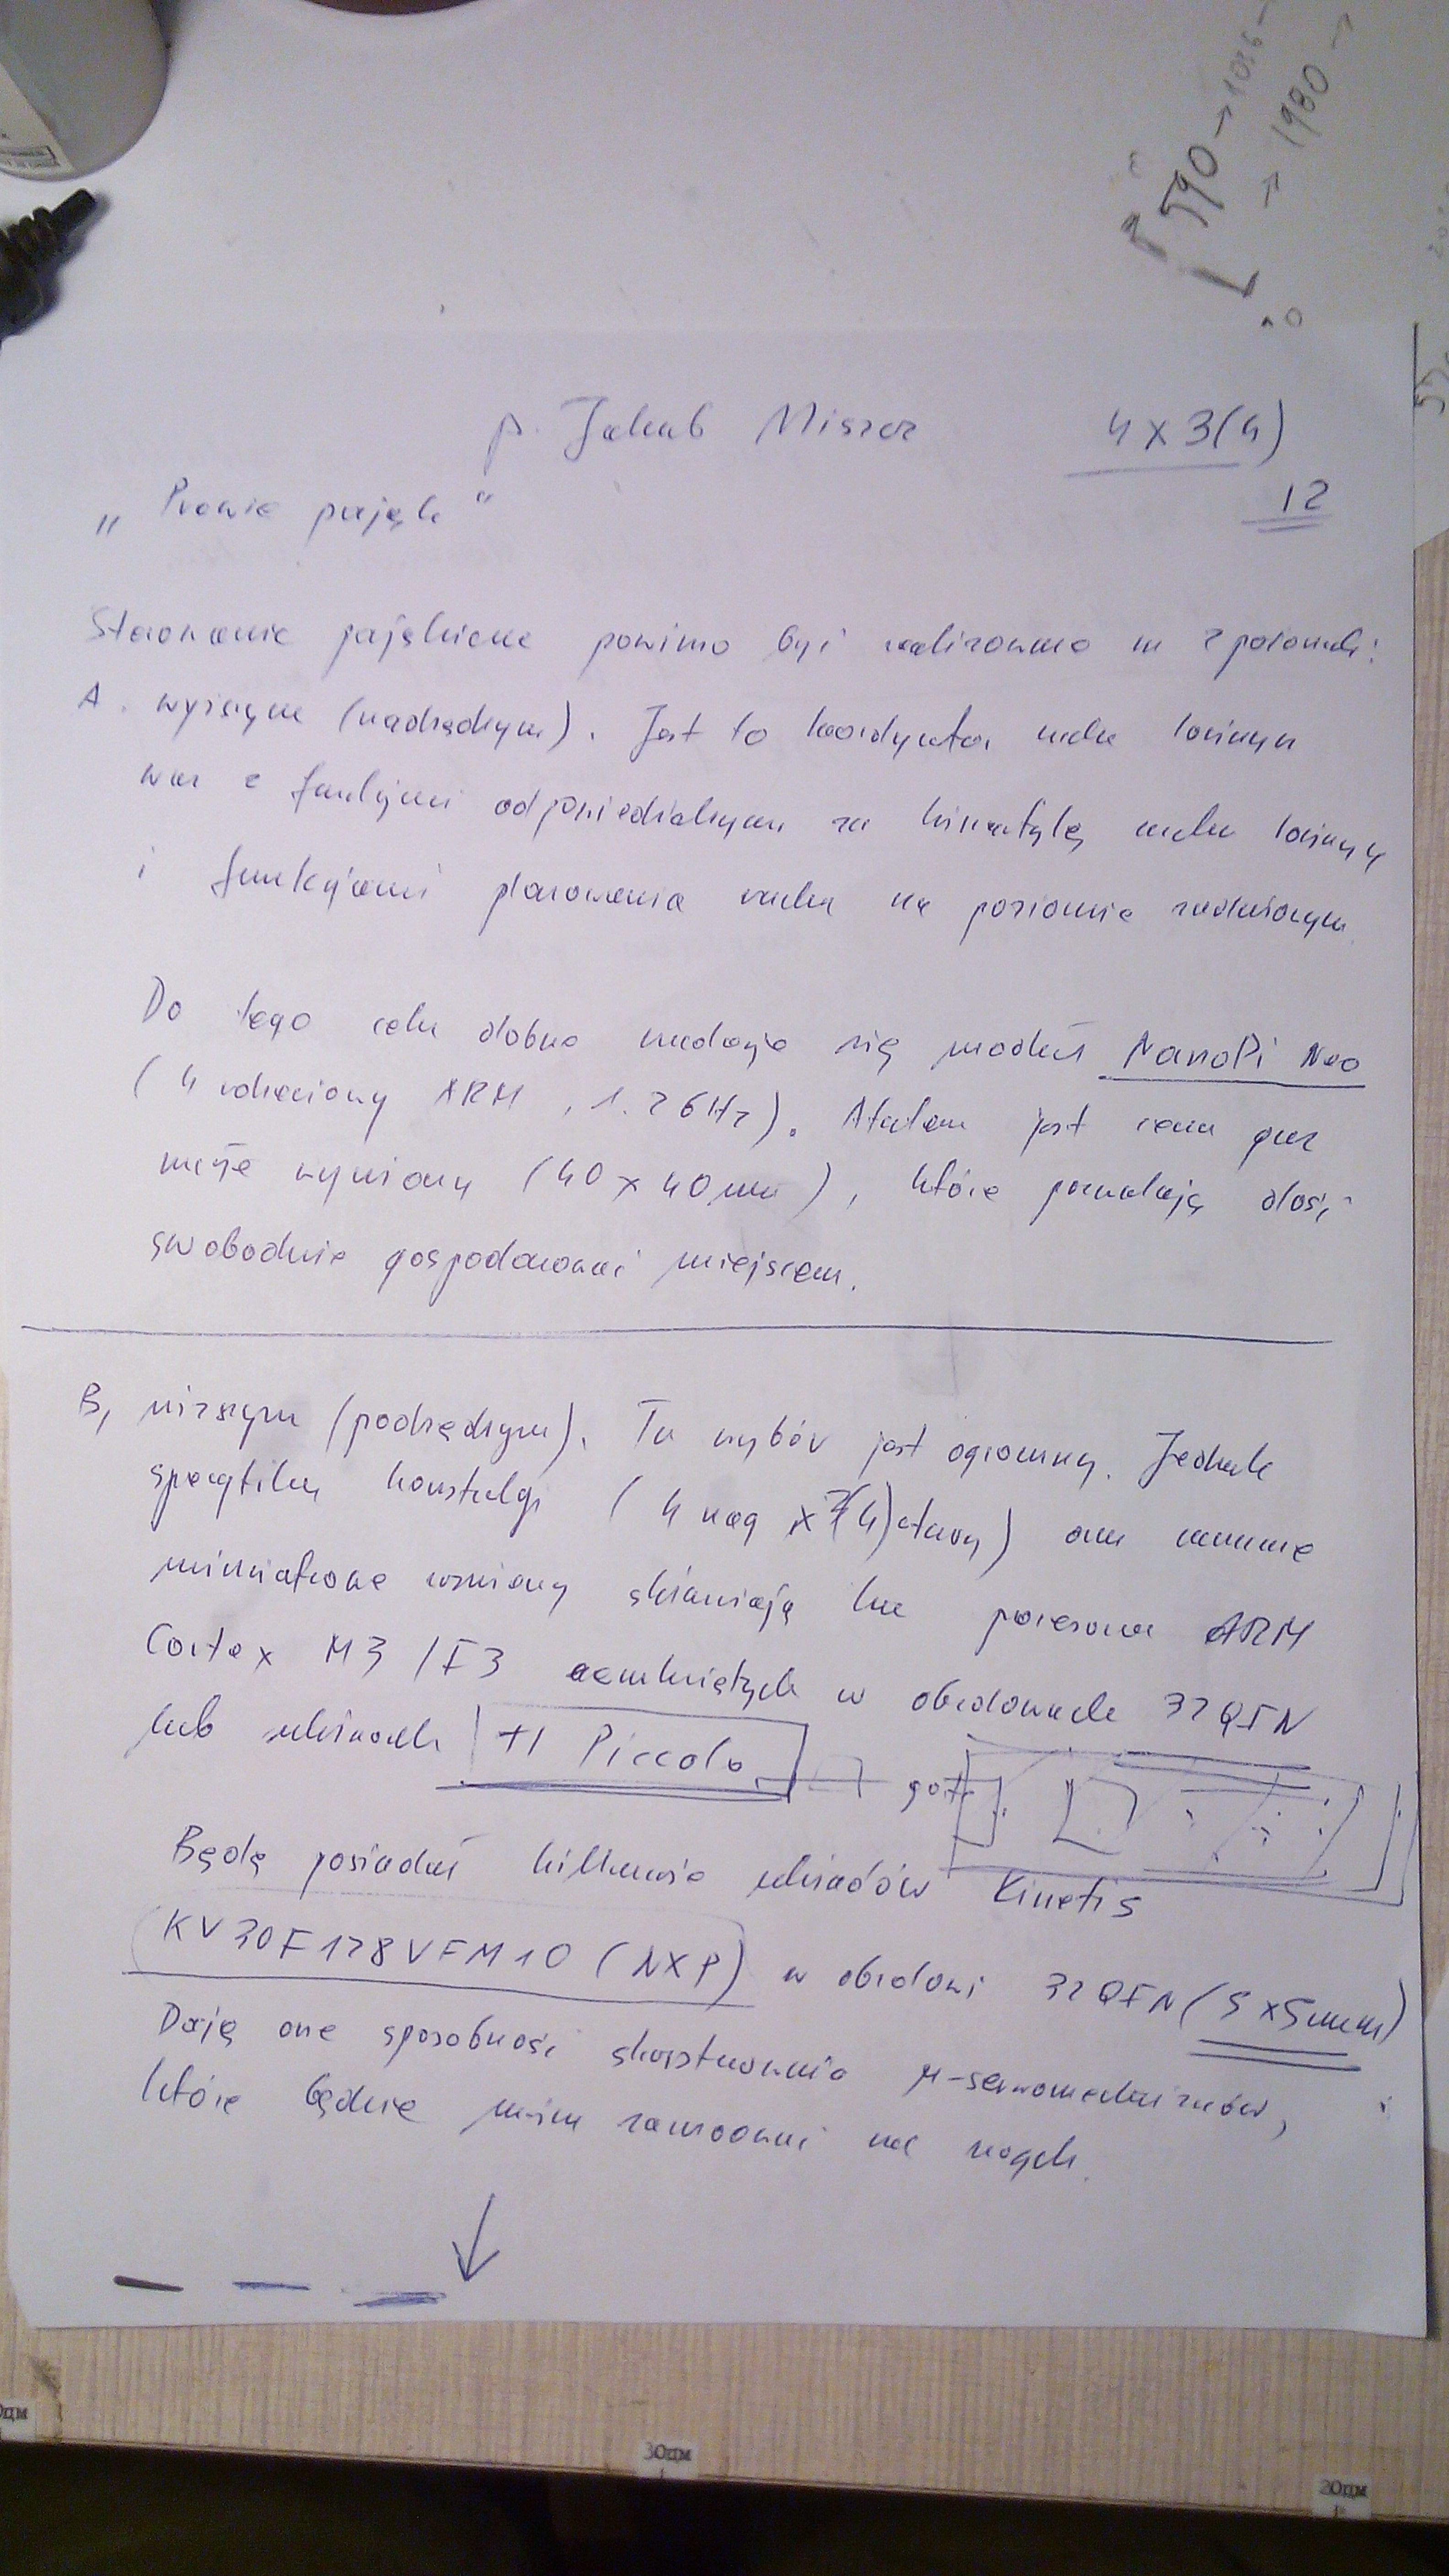 590 → 1016 -
→ 1980 →
p. Jakub 4 x 3(4)
12
„ Prawie pająk "
Sterowanie pająkiem powinno być realizowane w 2 poziomach:
A. wyższym (nadrzędnym). Jest to koordynator ruchu
wraz z funkcjami odpowiedzialnymi za kinematykę ruchu
i funkcjami planowania ruchu na poziomie
Do tego celu dobrze nadaje się moduł NanoPi Neo
( 4 rdzeniowy ARM , 1.2 GHz). Atutem jest cena oraz
małe wymiary (40 x 40 mm ), które pozwalają dość
swobodnie gospodarować miejscem.
B, niższym (podrzędnym). Tu wybór jest ogromny. Jednak
specyfika konstrukcji ( 4 nogi x (4) ) oraz
miniaturowe wymiary skłaniają ku ARM
Cortex M3 / F3 zamkniętych w obudowach 32 QFN
lub układach TI Piccolo
Będę posiadał kilkanaście układów Kinetis
KV30F128VFM10 (NXP) w obudowi 32 QFN (5 x5mm)
Dają one sposobność skonstruowania μ-serwomechanizmów,
które będzie można zamocować na nogach.
30цм
20цм